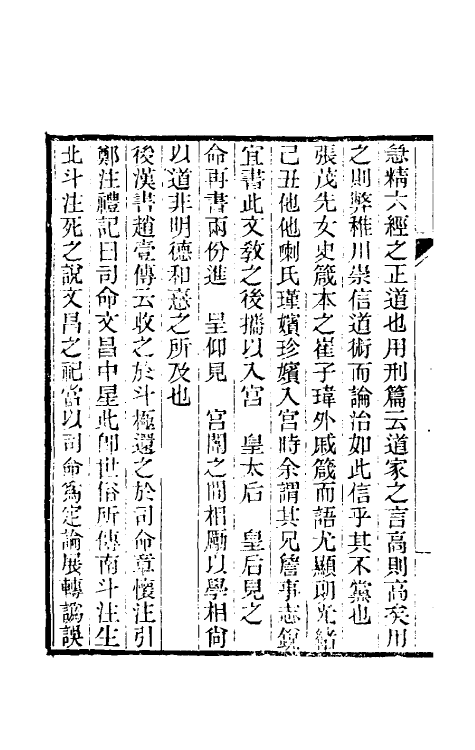 急精六經之正道也用刑篇云道家之言高則高矣用
之則弊稚川崇信道術而論治如此信乎其不黨也
張茂先女史箴本之崔子瑋外戚箴而語尤顯朗光緒
己丑他他喇氏瑾嬪珍嬪入宮時余謂其兄詹事志銳
宜書此文敎之後攜以入宮　皇太后　皇后見之
命再書兩份進　呈仰見　宮闈之間相勵以學相尙
以道非明德和憙之所及也
後漢書趙壹傳云收之於斗極還之於司命章懷注引
鄭注禮記曰司命文昌中星此卽世俗所傳南斗注生
北斗注死之說文昌之祀當以司命爲定論展轉譌誤